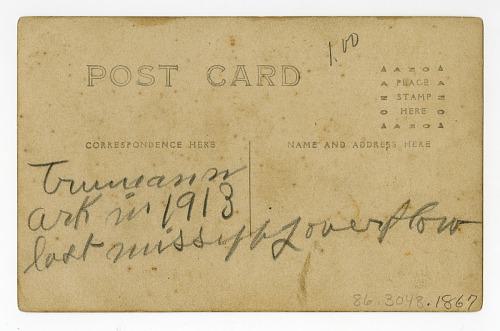 1.00
POST CARD
AZNO
PLACE
STAMP
HERE
AZNO
CORRESPONDENCE HERE
NAME AND ADDRESS HERE
Trumann
Ark in 1913
last missippy overflow
86.3048.1867